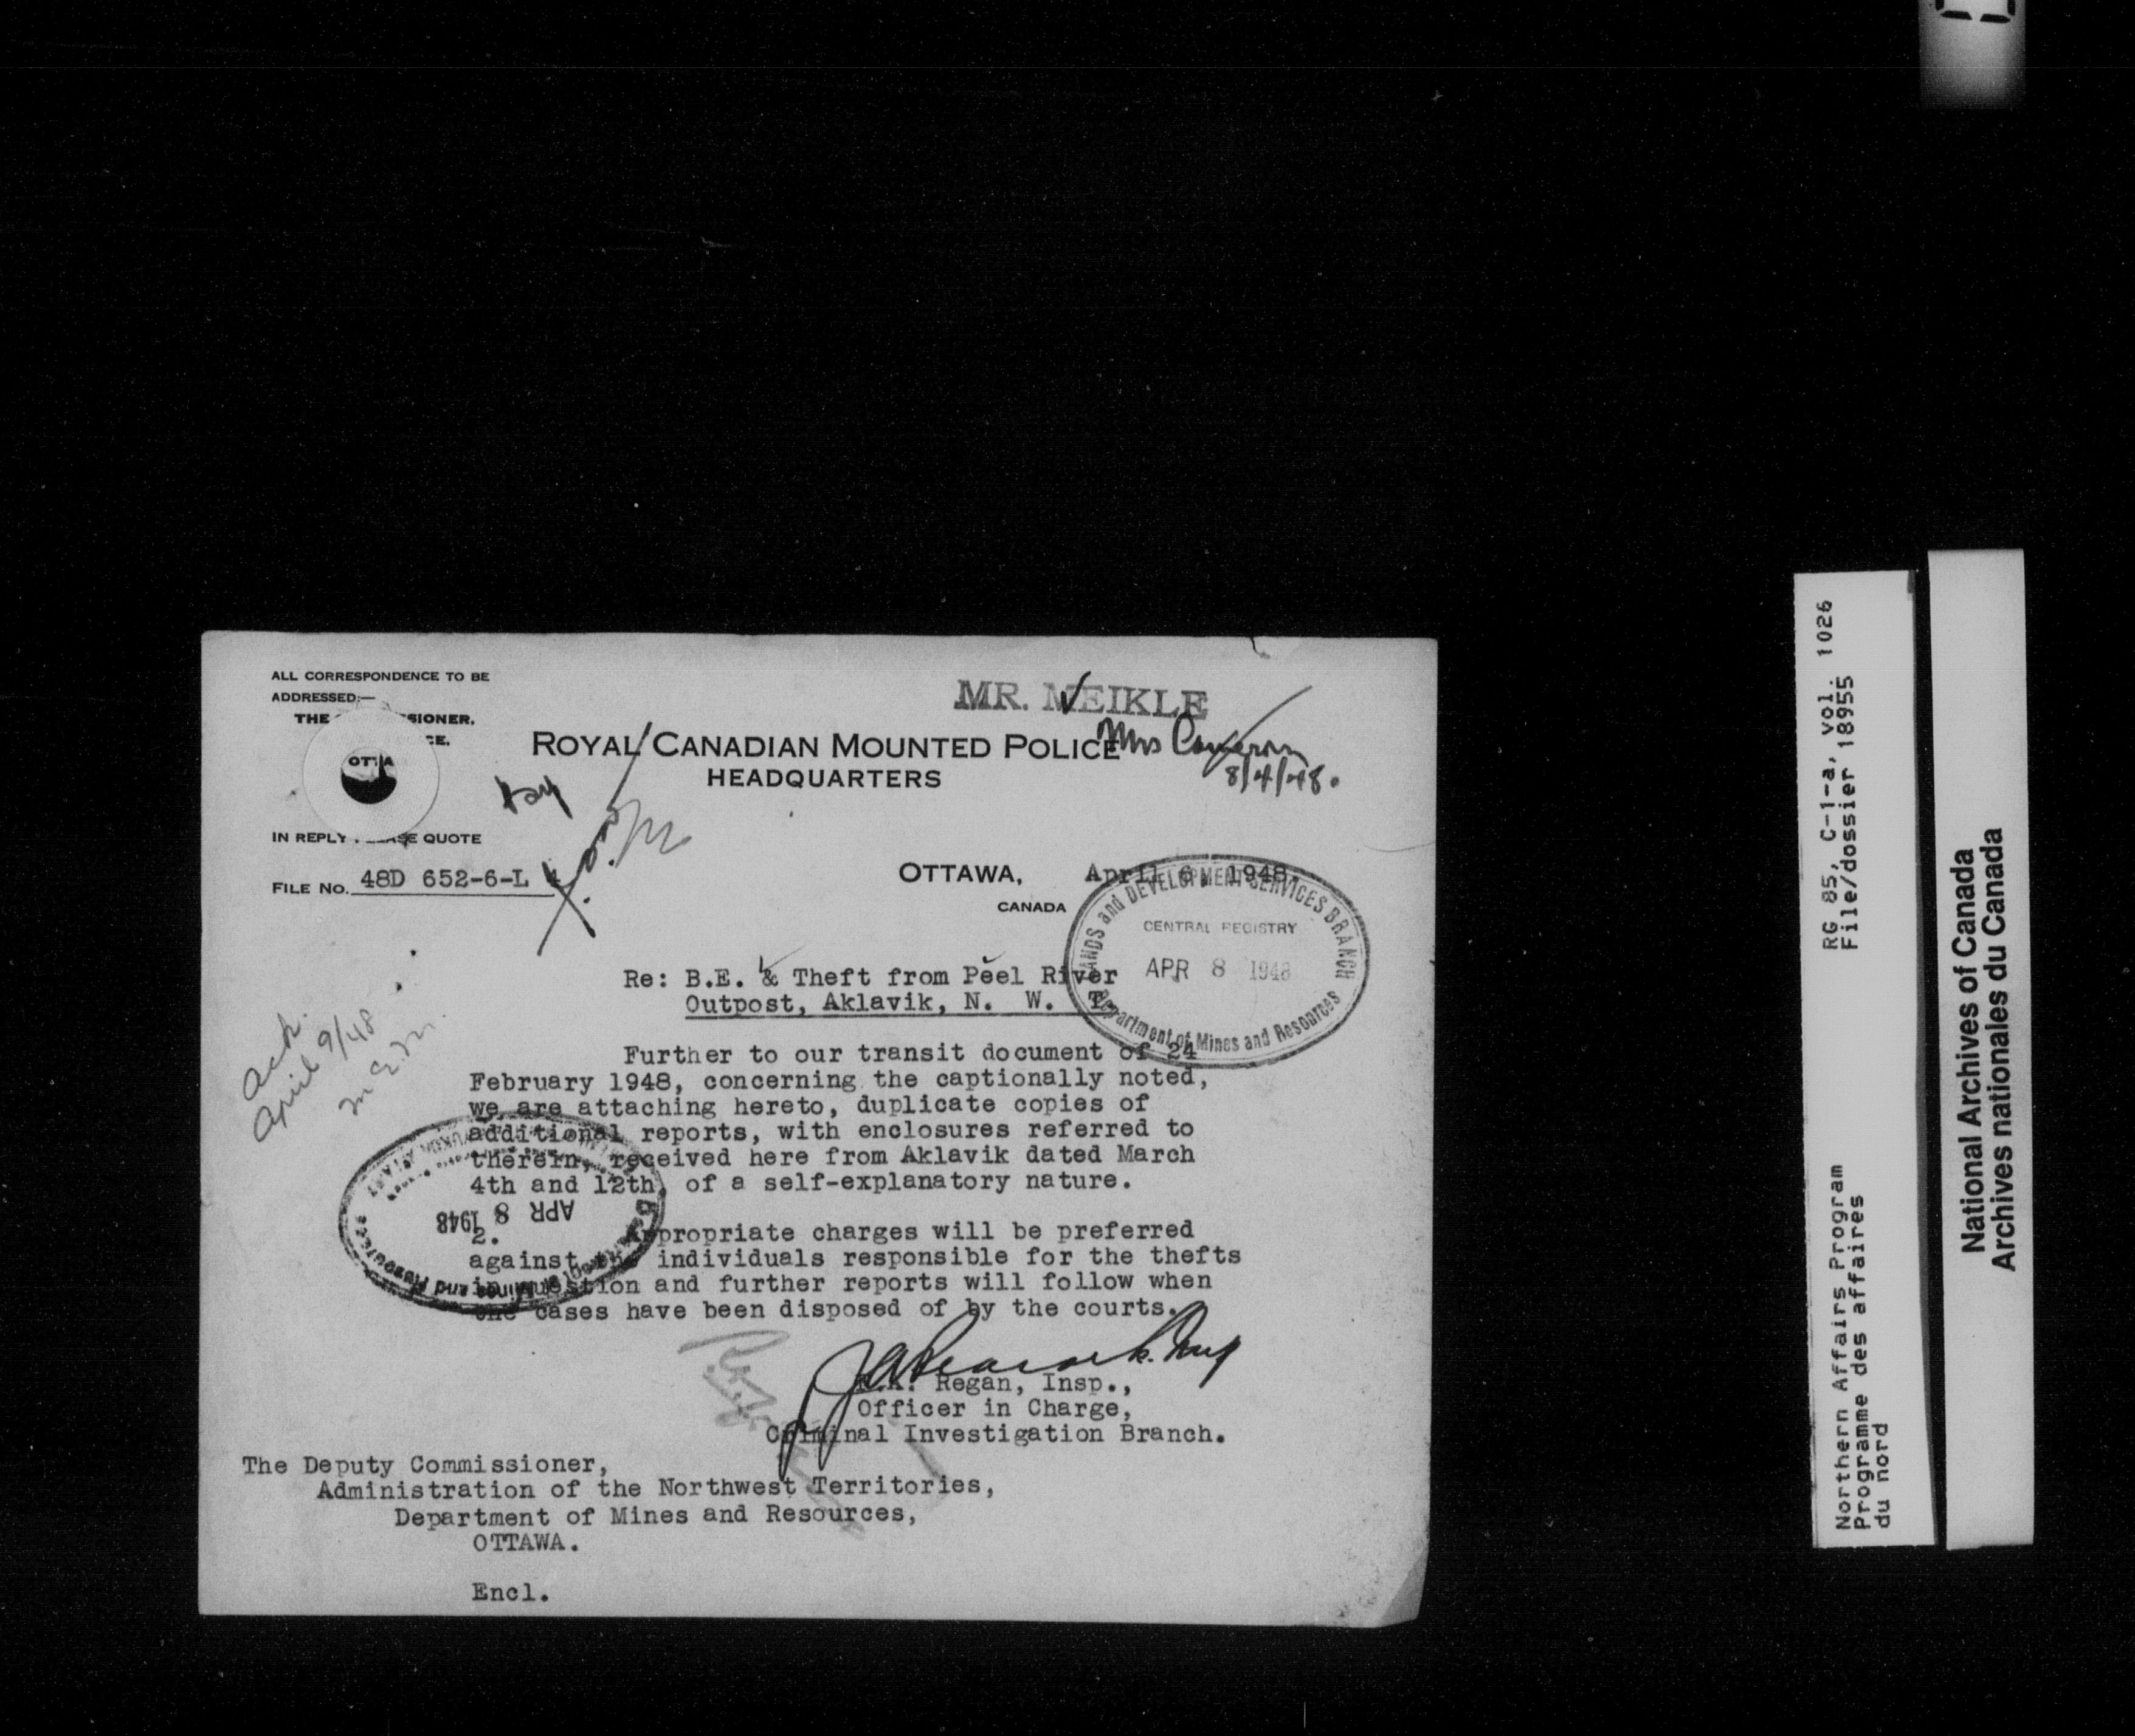 ALL CORRESPONDENCE TO BE
ADDRESSED:—
THE SIONER.
CE.
OTTA A
MR. MEIKLE
Mrs Cameron
8/4/48.
ROYAL CANADIAN MOUNTED POLICE
HEADQUARTERS
IN REPLY SE QUOTE
FILE NO. 48D 652-6-L
OTTAWA, April 6, 1948.
CANADA
LANDS and DEVELOPMENT SERVICES BRANCH
CENTRAL REGISTRY
APR 8 1948
Department of Mines and Resources
Re: B.E. & Theft from Peel River
Outpost, Aklavik, N. W. T.
Ack.
April 9/48
Further to our transit document of 24
February 1948, concerning the captionally noted,
we are attaching hereto, duplicate copies of
additional reports, with enclosures referred to
therein, received here from Aklavik dated March
4th and 12th, of a self-explanatory nature.
APR 8 1948
Mines and Resources
2. Appropriate charges will be preferred
against the individuals responsible for the thefts
in question and further reports will follow when
the cases have been disposed of by the courts.
Regan, Insp.,
Officer in Charge,
Criminal Investigation Branch.
The Deputy Commissioner,
Administration of the Northwest Territories,
Department of Mines and Resources,
OTTAWA.
Encl.
RG 85, C-1-a, vol. 1026
File/dossier 18955
Northern Affairs Program
Programme des affaires
du nord
National Archives of Canada
Archives nationales du Canada